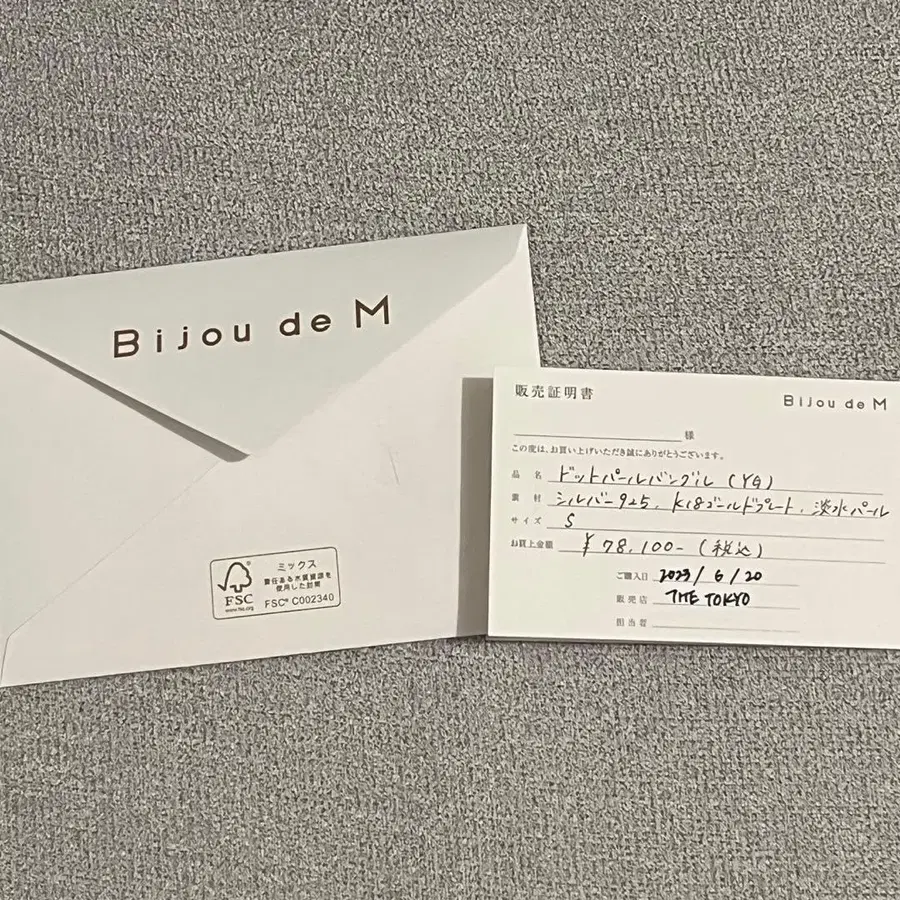 Bijou de M
ミックス
責任ある木質資源を
使用した封筒
FSC
www.fsc.org
FSC® C002340
販売証明書
Bijou de M
様
この度は、お買い上げいただき誠にありがとうございます。
品 名 ドットパールバングル (YG)
素 材 シルバー925、K18ゴールドプレート、淡水パール
サイズ S
お買上金額 ¥78,100-(税込)
ご購入日 2023/6/20
販売店 THE TOKYO
担当者